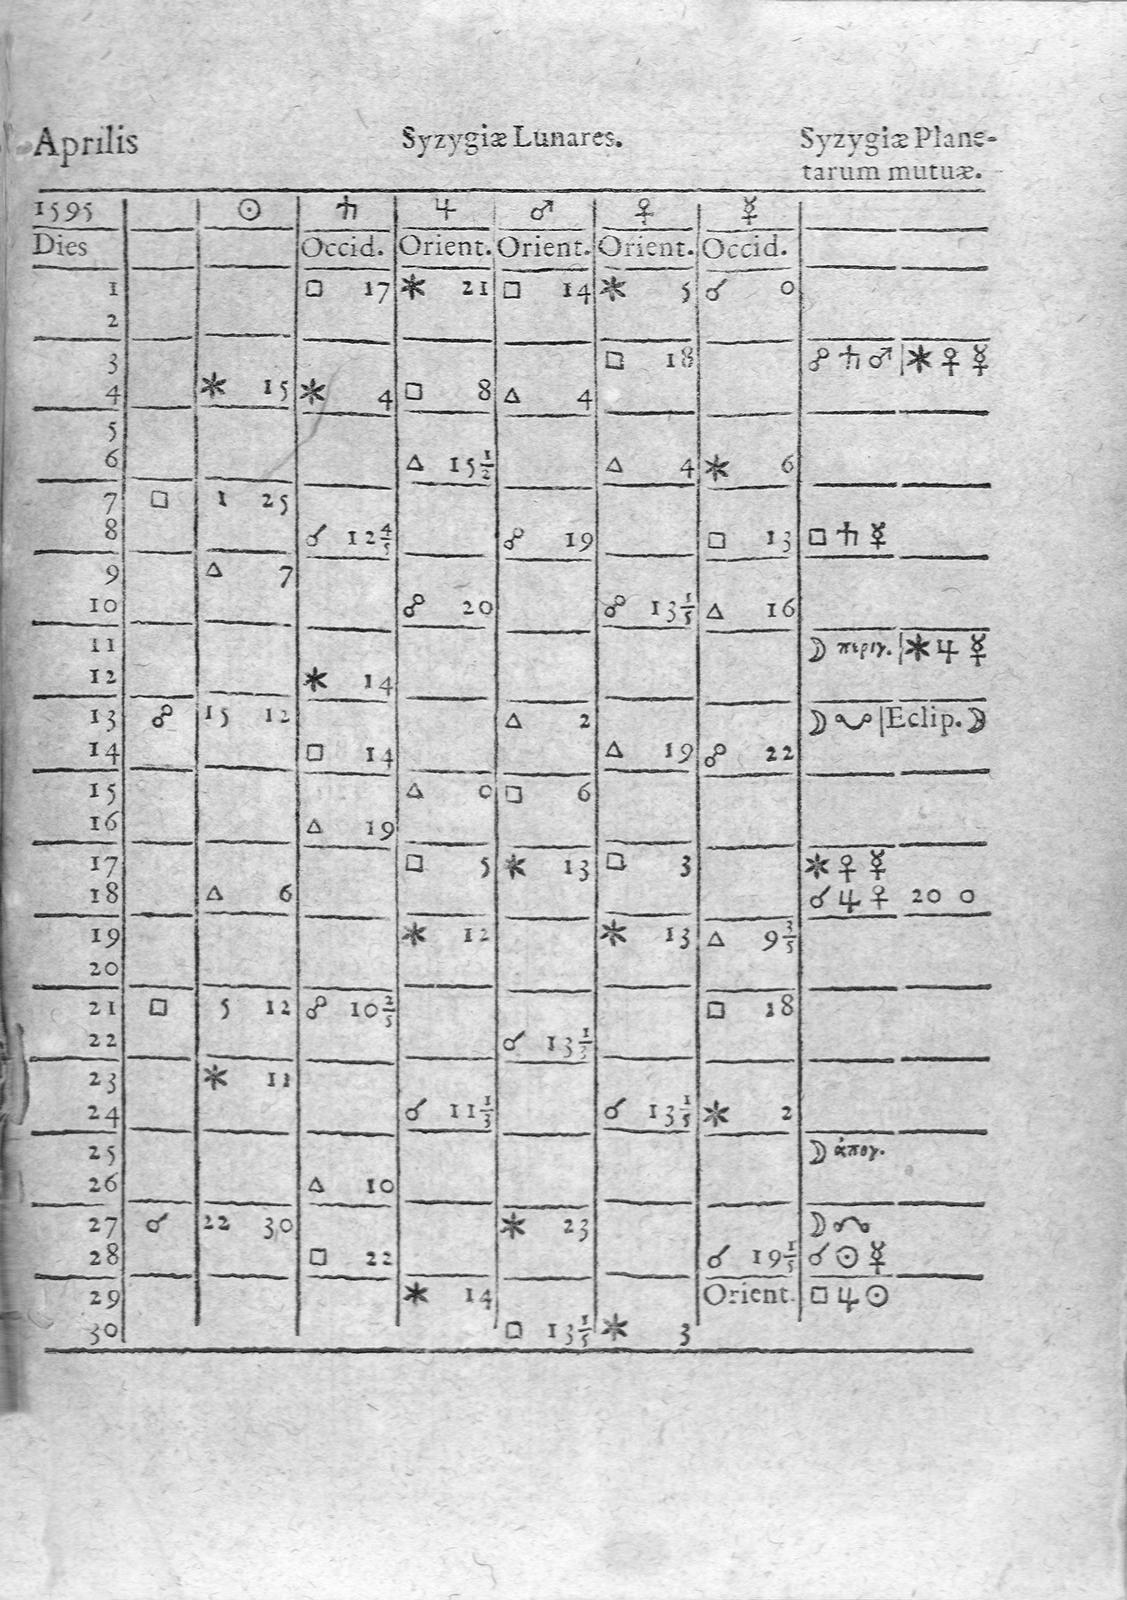 Aprilis Syzygiæ Lunares. Syzygiæ Plane-
tarum mutuæ.
1595 ☉ ♄ ♃ ♂ ♀ ☿
Dies Occid. Orient. Orient. Orient. Occid.
1 □ 17 ⚹ 21 □ 14 ⚹ 5 ☌ 0
2
3 □ 18 ☍ ♄ ♂ | ⚹ ♀ ☿
4 ⚹ 15 ⚹ 4 □ 8 △ 4
5
6 △ 15 1/2 △ 4 ⚹ 6
7 □ 1 25
8 ☌ 12 4/5 ☍ 19 □ 13 □ ♄ ☿
9 △ 7
10 ☍ 20 ☍ 13 1/5 △ 16
11 ☽ περιγ. | ⚹ ♃ ☿
12 ⚹ 14
13 ☍ 15 12 △ 2 ☽ ☋ | Eclip. ☽
14 □ 14 △ 19 ☍ 22
15 △ 0 □ 6
16 △ 19
17 □ 5 ⚹ 13 □ 3 ⚹ ♀ ☿
18 △ 6 ☌ ♃ ♀ 20 0
19 ⚹ 12 ⚹ 13 △ 9 3/5
20
21 □ 5 12 ☍ 10 2/5 □ 18
22 ☌ 13
23 ⚹ 11
24 ☌ 11 1/3 ☌ 13 1/5 ⚹ 2
25 ☽ ἀπογ.
26 △ 10
27 ☌ 22 30 ⚹ 23 ☽ ☊
28 □ 22 ☌ 19 1/5 ☌ ☉ ☿
29 ⚹ 14 Orient. □ ♃ ☉
30 □ 13 1/5 ⚹ 3